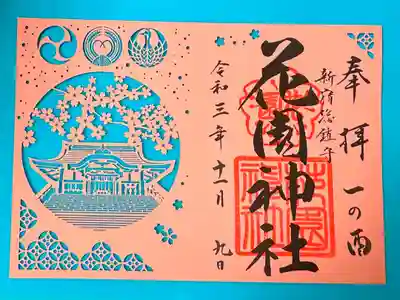 奉拝 一の酉
新宿総鎮守
花園神社
令和三年十一月九日